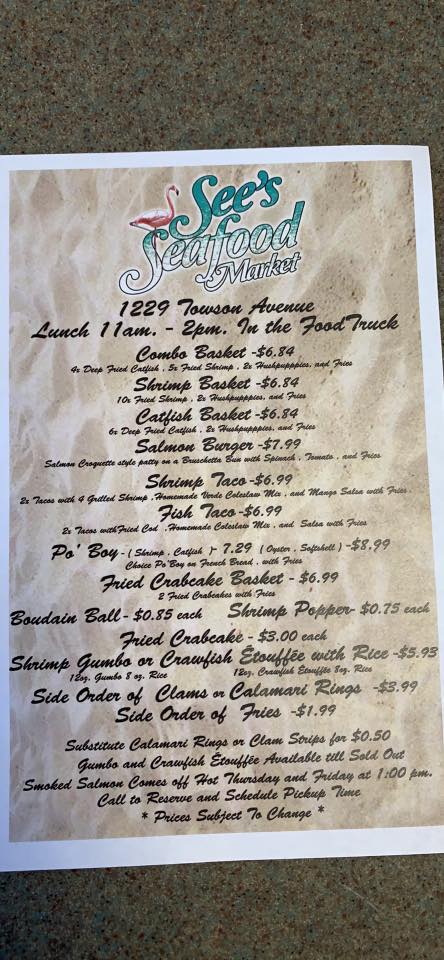 See's
Seafood
Market
1229 Towson Avenue
Lunch 11am. - 2pm. In the Food Truck
Combo Basket -$6.84
4x Deep Fried Catfish , 5x Fried Shrimp , 2x Hushpupppies, and Fries
Shrimp Basket -$6.84
10x Fried Shrimp , 2x Hushpupppies, and Fries
Catfish Basket -$6.84
6x Deep Fried Catfish , 2x Hushpupppies, and Fries
Salmon Burger -$7.99
Salmon Croquette style patty on a Bruschetta Bun with Spinach , Tomato , and Fries
Shrimp Taco -$6.99
2x Tacos with 4 Grilled Shrimp , Homemade Verde Coleslaw Mix , and Mango Salsa with Fries .
Fish Taco -$6.99
2x Tacos withFried Cod , Homemade Coleslaw Mix , and Salsa with Fries
Po' Boy - ( Shrimp , Catfish )- 7.29 ( Oyster , Softshell ) -$8.99
Choice Po'Boy on French Bread , with Fries
Fried Crabcake Basket - $6.99
2 Fried Crabcakes with Fries
Boudain Ball - $0.85 each Shrimp Popper- $0.75 each
Fried Crabcake - $3.00 each
Shrimp Gumbo or Crawfish Étouffée with Rice -$5.93
12oz. Gumbo 8 oz. Rice 12oz. Crawfish Étouffée 8oz. Rice
Side Order of Clams or Calamari Rings -$3.99
Side Order of Fries -$1.99
Substitute Calamari Rings or Clam Strips for $0.50
Gumbo and Crawfish Étouffée Available till Sold Out
Smoked Salmon Comes off Hot Thursday and Friday at 1:00 pm.
Call to Reserve and Schedule Pickup Time
* Prices Subject To Change *